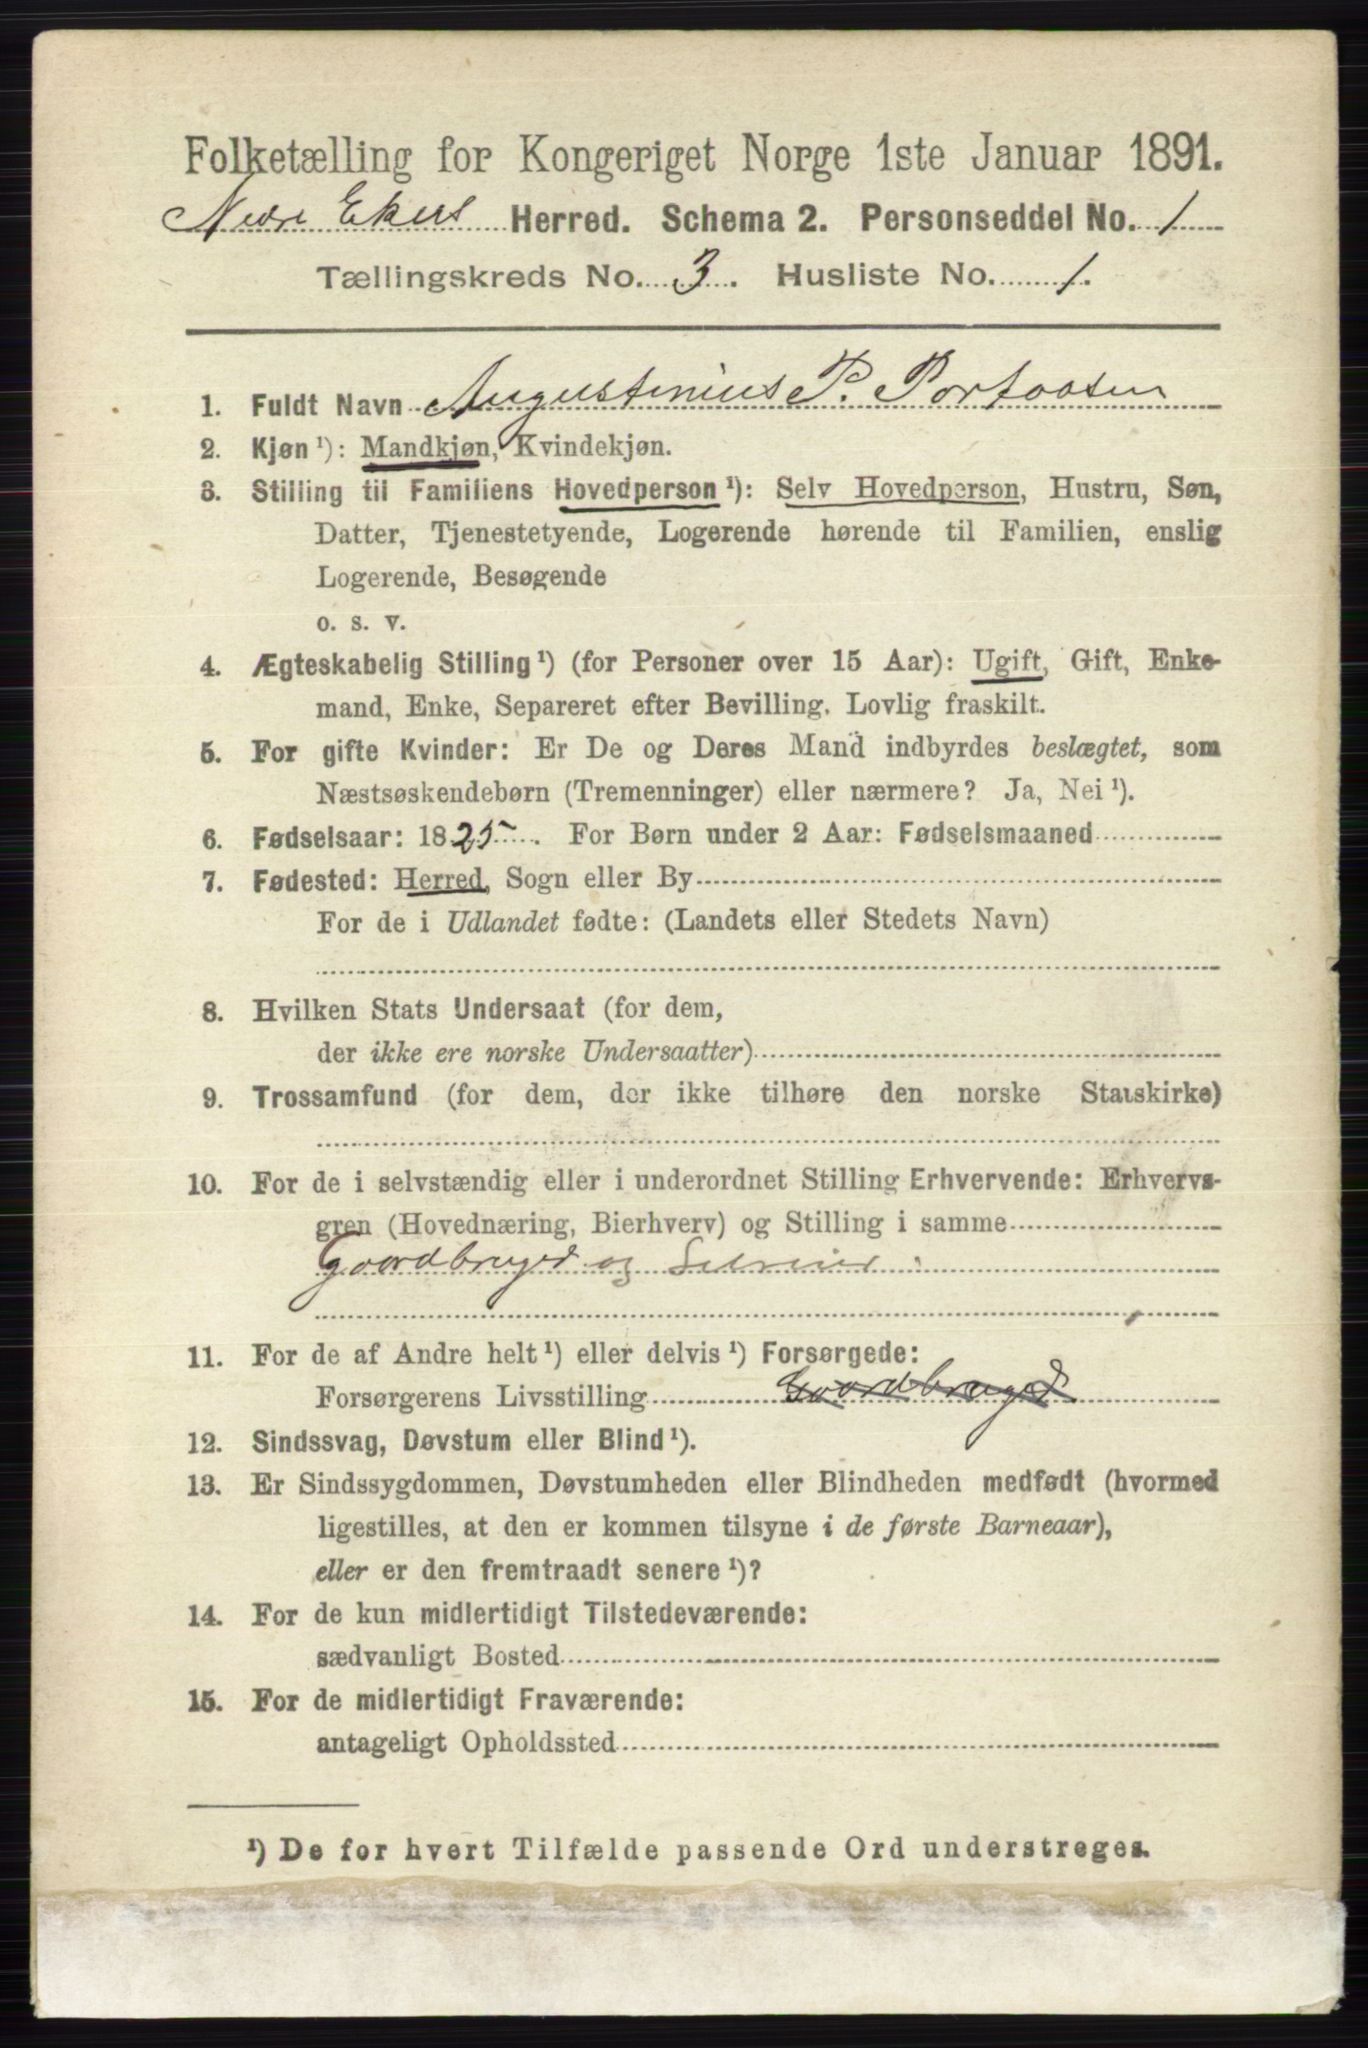 Folketælling for Kongeriget Norge 1ste Januar 1891.
Nedre Ekers Herred. Schema 2. Personseddel No. 1
Tællingskreds No. 3. Husliste No. 1.
1. Fuldt Navn Augustinius P. Portaasen
2. Kjøn ¹): Mandkjøn, Kvindekjøn.
3. Stilling til Familiens Hovedperson ¹): Selv Hovedperson, Hustru, Søn,
Datter, Tjenestetyende, Logerende hørende til Familien, enslig
Logerende, Besøgende
o. s. v.
4. Ægteskabelig Stilling ¹) (for Personer over 15 Aar): Ugift, Gift, Enke-
mand, Enke, Separeret efter Bevilling. Lovlig fraskilt.
5. For gifte Kvinder: Er De og Deres Mand indbyrdes beslægtet, som
Næstsøskendebørn (Tremenninger) eller nærmere? Ja, Nei ¹).
6. Fødselsaar: 1825. For Børn under 2 Aar: Fødselsmaaned
7. Fødested: Herred, Sogn eller By
For de i Udlandet fødte: (Landets eller Stedets Navn)
8. Hvilken Stats Undersaat (for dem,
der ikke ere norske Undersaatter)
9. Trossamfund (for dem, der ikke tilhøre den norske Statskirke)
10. For de i selvstændig eller i underordnet Stilling Erhvervende: Erhvervs-
gren (Hovednæring, Bierhverv) og Stilling i samme
Gaardbruger og Selveier
11. For de af Andre helt ¹) eller delvis ¹) Forsørgede:
Forsørgerens Livsstilling Gaardbruger
12. Sindssvag, Døvstum eller Blind ¹).
13. Er Sindssygdommen, Døvstumheden eller Blindheden medfødt (hvormed
ligestilles, at den er kommen tilsyne i de første Barneaar),
eller er den fremtraadt senere ¹)?
14. For de kun midlertidigt Tilstedeværende:
sædvanligt Bosted
15. For de midlertidigt Fraværende:
antageligt Opholdssted
¹) De for hvert Tilfælde passende Ord understreges.